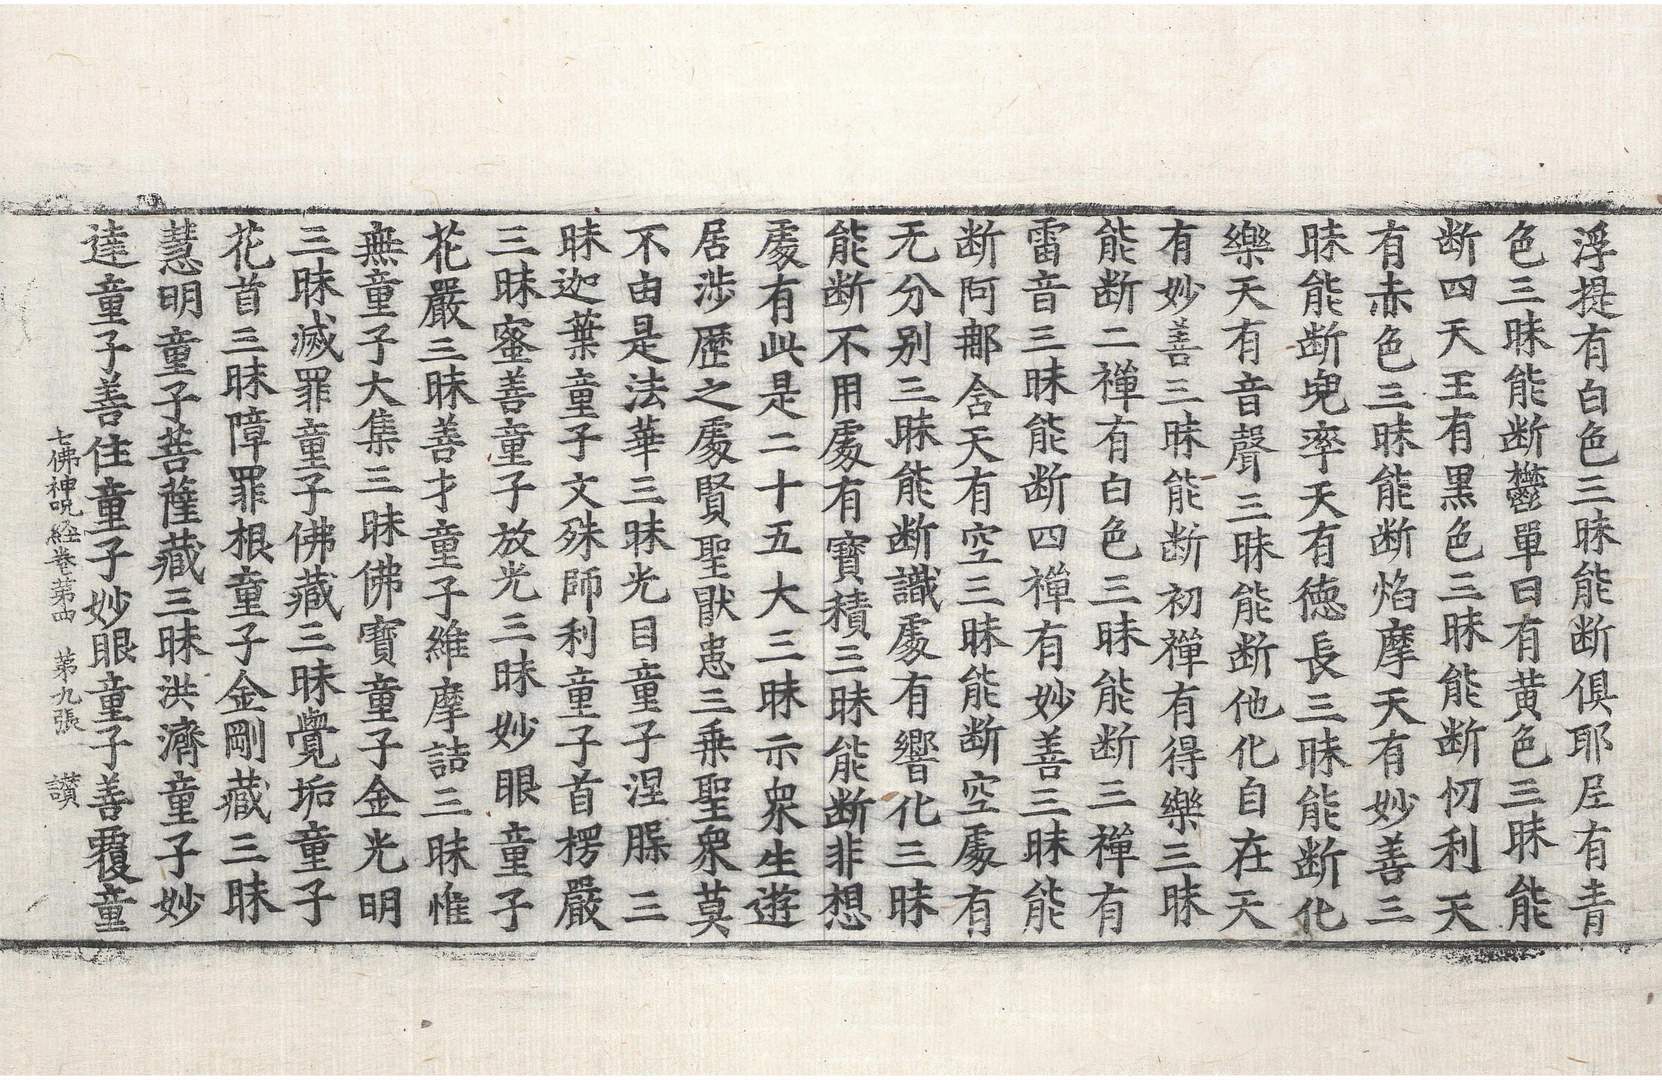 浮提有白色三昧能断俱耶尼有青
色三昧能断鬱單曰有黄色三昧能
断四天王有黒色三昧能断忉利天
有赤色三昧能断焰摩天有妙善三
昧能断兜率天有德長三昧能断化
樂天有音聲三昧能断他化自在天
有妙善三昧能断初禪有得樂三昧
能断二禪有白色三昧能断三禪有
雷音三昧能断四禪有妙善三昧能
断阿鄃含天有空三昧能断空處有
无分别三昧能断識處有響化三昧
能断不用處有寶積三昧能断非想
處有此是二十五大三昧示衆生遊
居涉歷之處賢聖猒恚三乗聖衆莫
不由是法華三昧光目童子涅𦜗三
昧迦葉童子文殊師利童子首楞嚴
三昧蜜善童子放光三昧妙眼童子
花嚴三昧善才童子維摩詰三昧惟
無童子大集三昧佛寶童子金光明
三昧滅罪童子佛藏三昧覺垢童子
花首三昧障罪根童子金剛藏三昧
慧明童子菩薩藏三昧洪濟童子妙
達童子善住童子妙眼童子善覆童
七佛神呪経卷第四　第九張　讃